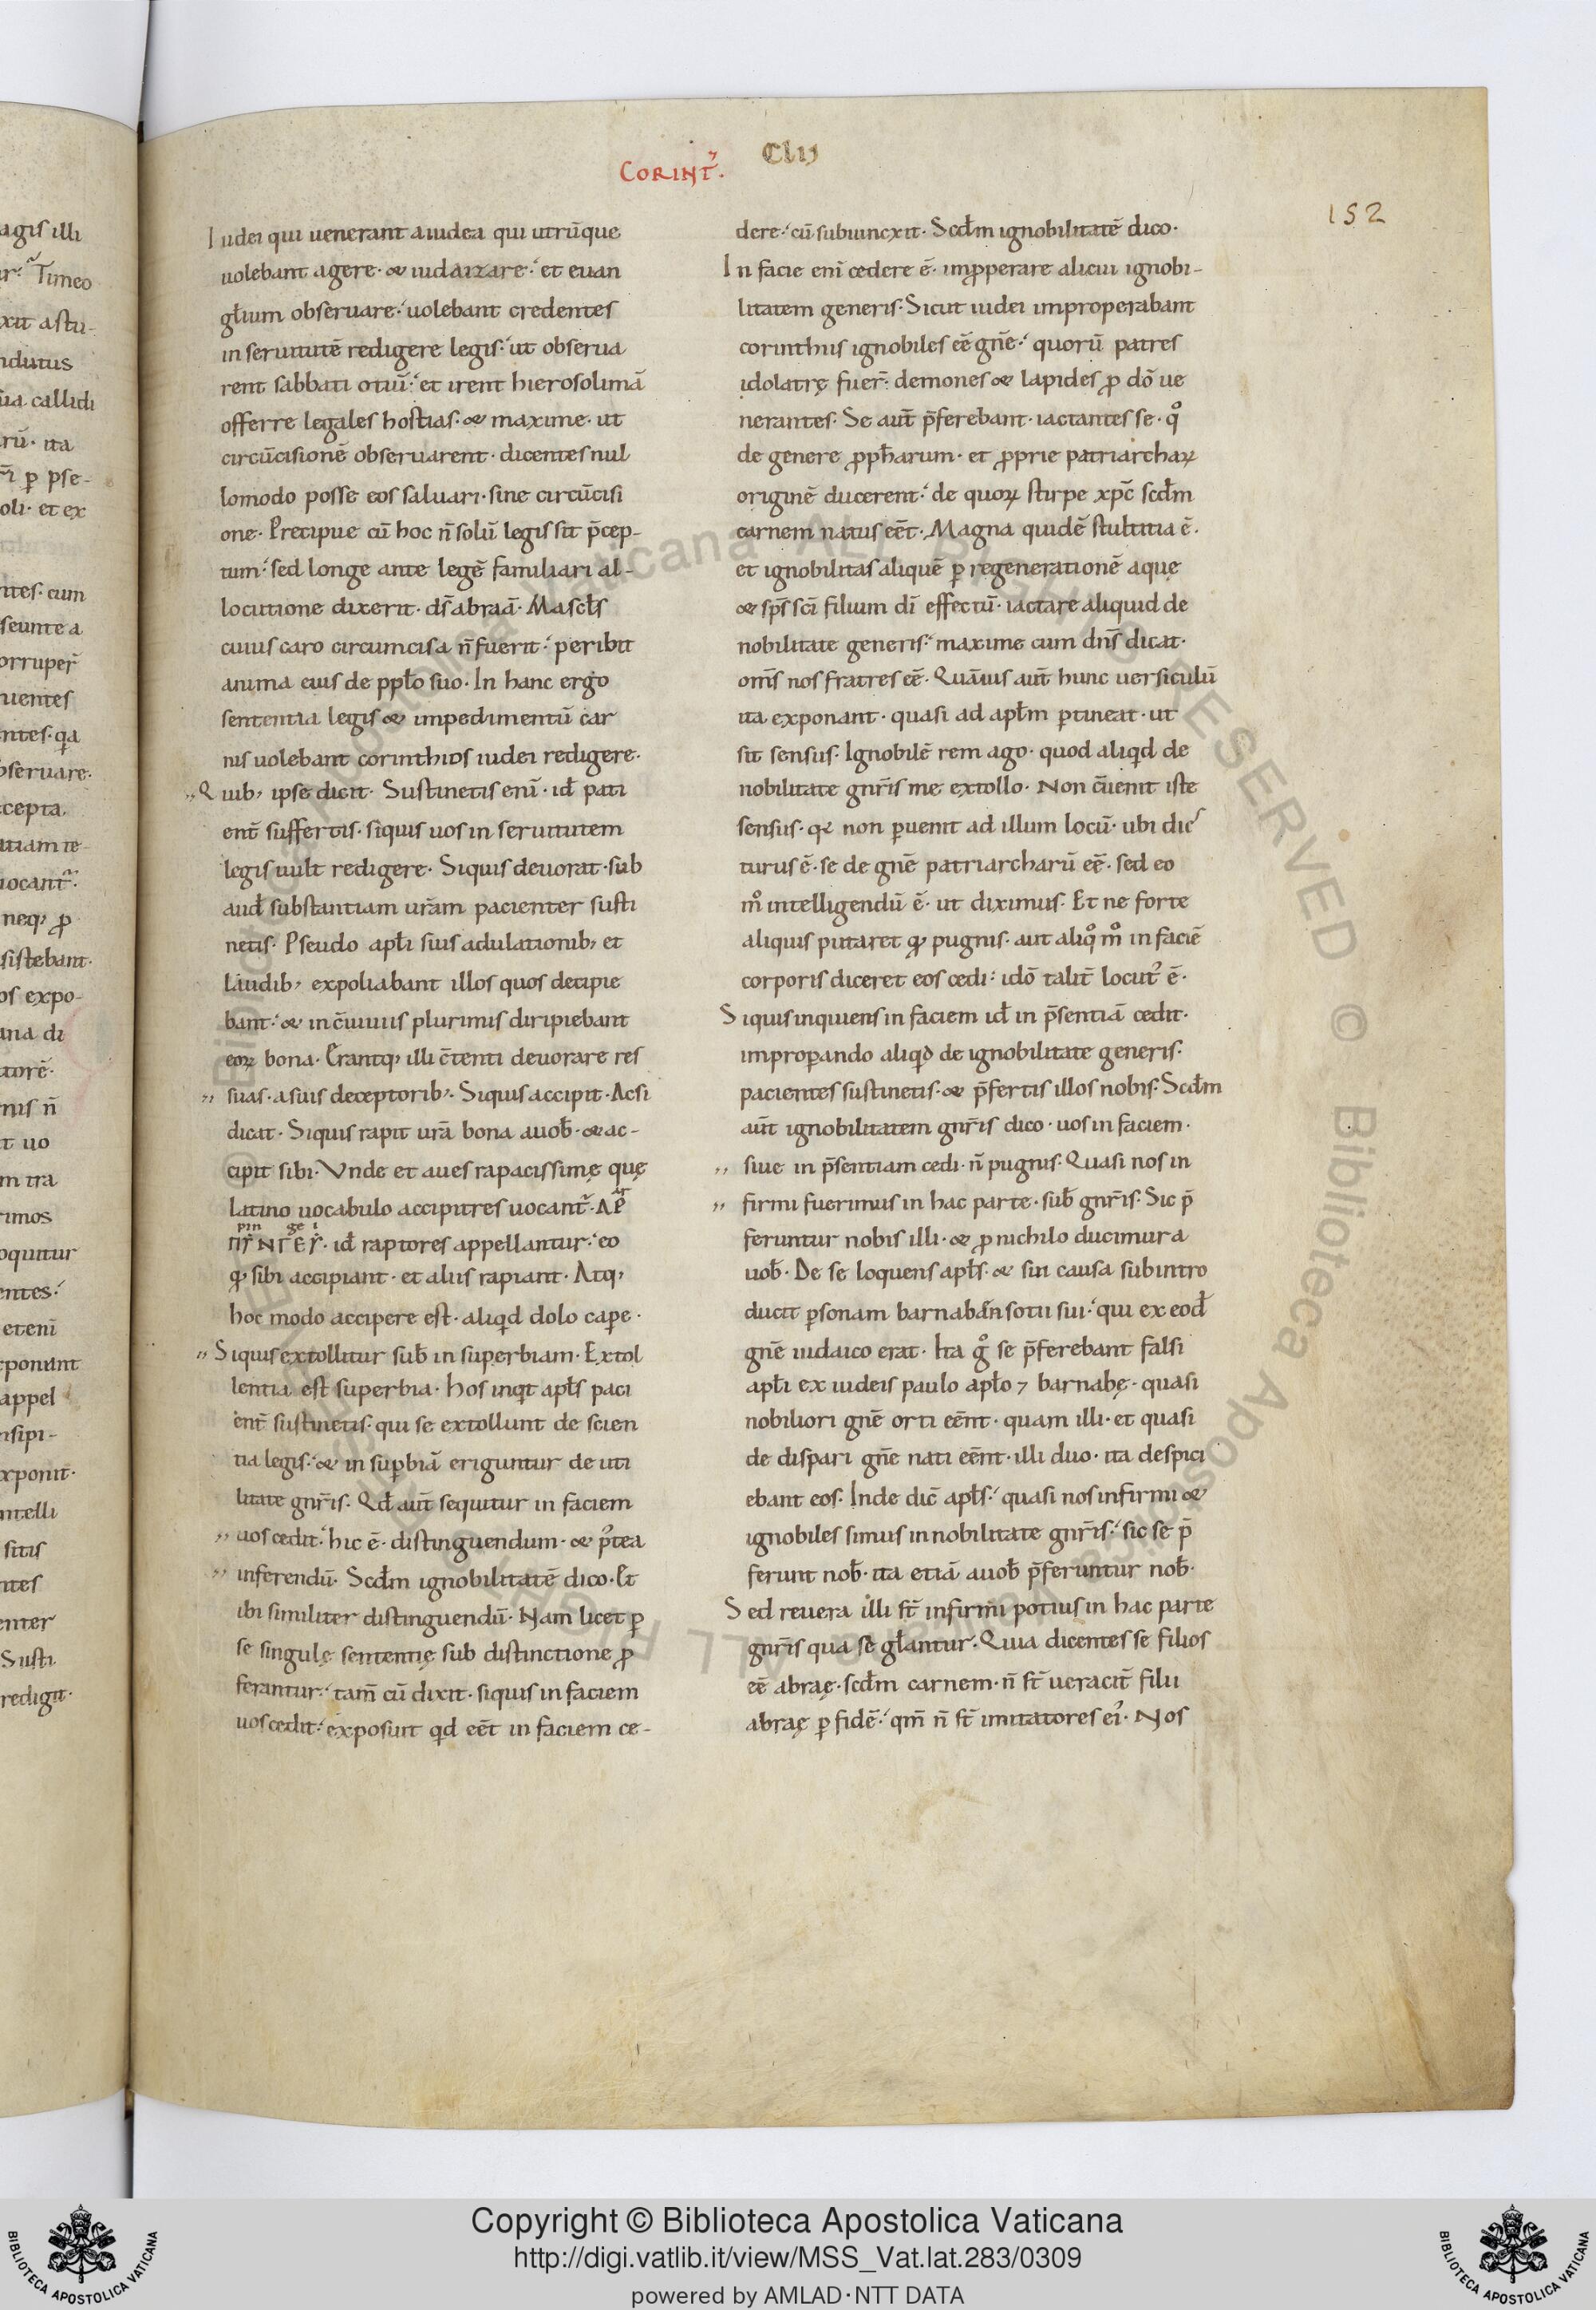 Corint᷒.
Clij
152
Iudei qui uenerant a iudea qui utrūque
uolebant agere · & iudaizare · et euan
głium obseruare · uolebant credentes
in seruitutē redigere legis · ut obserua
rent sabbati otiū · et irent hierosolimā
offerre legales hostias · & maxime · ut
circūcisionē obseruarent · dicentes nul
lomodo posse eos saluari · sine circūcisi
one · Precipue cū hoc n̄ solū legis sit p̄cep-
tum · sed longe ante legē familiari al-
locutione dixerit · ds̄ abraā · Mascłs
cuius caro circumcisa n̄ fuerit · peribit
anima eius de ppło suo · In hanc ergo
sententia legis & impedimentū car
nis uolebant corinthios iudei redigere ·
Quib; ipse dicit · Sustinetis enī · id̄ pati
ent̄ suffertis · siquis uos in seruitutem
legis uult redigere · Siquis deuorat · sub
aud̄ substantiam ur̄am pacienter susti
netis · Pseudo apłi suis adulationib; et
laudib; expoliabant illos quos decipie
bant · & in c̄uiuiis plurimis diripiebant
eoꝝ bona · Erantq; illi c̄tenti deuorare res
suas · a suis deceptorib; · Siquis accipit · Acsi
dicat · Siquis rapit urā bona a uob̄ · & ac-
cipit sibi · Vnde et aues rapacissimę quę
latino uocabulo accipitres uocant᷒ · ΑΡ
id̄ raptores appellantur · eo
ꝙ sibi accipiant · et aliis rapiant · Atq;
hoc modo accipere est · aliqd dolo cape ·
Siquis extollitur sub̄ in superbiam · Extol
lentia est superbia · Hos inqt apłs paci
ent̄ sustinetis · qui se extollunt de scien
tia legis · & in suꝑbiā eriguntur de uti
litate gnr̄is · Qd̄ aut̄ sequitur in faciem
uos cedit · hic ē · distinguendum · & p᷒tea
inferendū · Scd̄m ignobilitatē dico · Et
ibi similiter distinguendū · Nam licet ꝑ
se singulę sententię sub distinctione ꝓ
ferantur · tam̄ cū dixit · siquis in faciem
uos cedit · exposuit qd eēt in faciem ce-
dere · cū subiuncxit · Scd̄m ignobilitatē dico ·
In facie enī cedere ē · imꝓperare alicui ignobi-
litatem generis · Sicut iudei improperabant
corinthiis ignobiles eē gn̄e · quorū patres
idolatrę fuer̄ · demones & lapides ꝓ dō ue
nerantes · Se aut̄ p̄ferebant · iactantes se · qͦ
de genere ꝓpħarum · et ꝓprie patriarchaꝝ
originē ducerent · de quoꝝ stirpe xpc̄ scd̄m
carnem natus eēt · Magna quidē stultitia ē ·
et ignobilitas aliquē ꝑ regenerationē aque
& sp̄s sc̄i filium dī effectū · iactare aliquid de
nobilitate generis · maxime cum dn̄s dicat ·
om̄s nos fratres eē · Quāuis aut̄ hunc uersiculū
ita exponant · quasi ad apłm ꝑtineat · ut
sit sensus · Ignobilē rem ago · quod aliqd de
nobilitate gnr̄is me extollo · Non c̄uenit iste
sensus · qꝛ non ꝑuenit ad illum locū · ubi dic
turus ē · se de gn̄e patriarcharū eē · sed eo
mͦ intelligendū ē · ut diximus · Et ne forte
aliquis putaret ꝙ pugnis · aut aliqͦ mͦ in faciē
corporis diceret eos cedi · idō talit̄ locut᷒ ē ·
Siquis inquiens in faciem id̄ in p̄sentiā cedit ·
improꝑando aliqd de ignobilitate generis ·
pacientes sustinetis · & p̄fertis illos nobis · Scd̄m
aut̄ ignobilitatem gnr̄is dico · uos in faciem ·
siue in p̄sentiam cedi · n̄ pugnis · Quasi nos in
firmi fuerimus in hac parte · sub̄ gnr̄is · Sic p̄
feruntur nobis illi · & ꝓ nichilo ducimur a
uob̄ · De se loquens apłs · & sui causa subintro
ducit ꝑsonam barnaban sotii sui · qui ex eod̄
gn̄e iudaico erat · Ita gͦ se p̄ferebant falsi
apłi ex iudeis paulo apło ⁊ barnabę · quasi
nobiliori gn̄e orti eēnt · quam illi · et quasi
de dispari gn̄e nati eēnt · illi duo · ita despici
ebant eos · Inde dic̄ apłs · quasi nos infirmi &
ignobiles simus in nobilitate gnr̄is · sic se p̄
ferunt nob̄ · ita etiā a uob̄ p̄feruntur nob̄ ·
Sed reuera illi st̄ infirmi potius in hac parte
gnr̄is qua se głantur · Quia dicentes se filios
eē abraę · scd̄m carnem · n̄ st̄ ueracit̄ filii
abraę ꝑ fidē · qm̄ n̄ st̄ imitatores ei᷒ · Nos
Copyright © Biblioteca Apostolica Vaticana
http://digi.vatlib.it/view/MSS_Vat.lat.283/0309
powered by AMLAD · NTT DATA